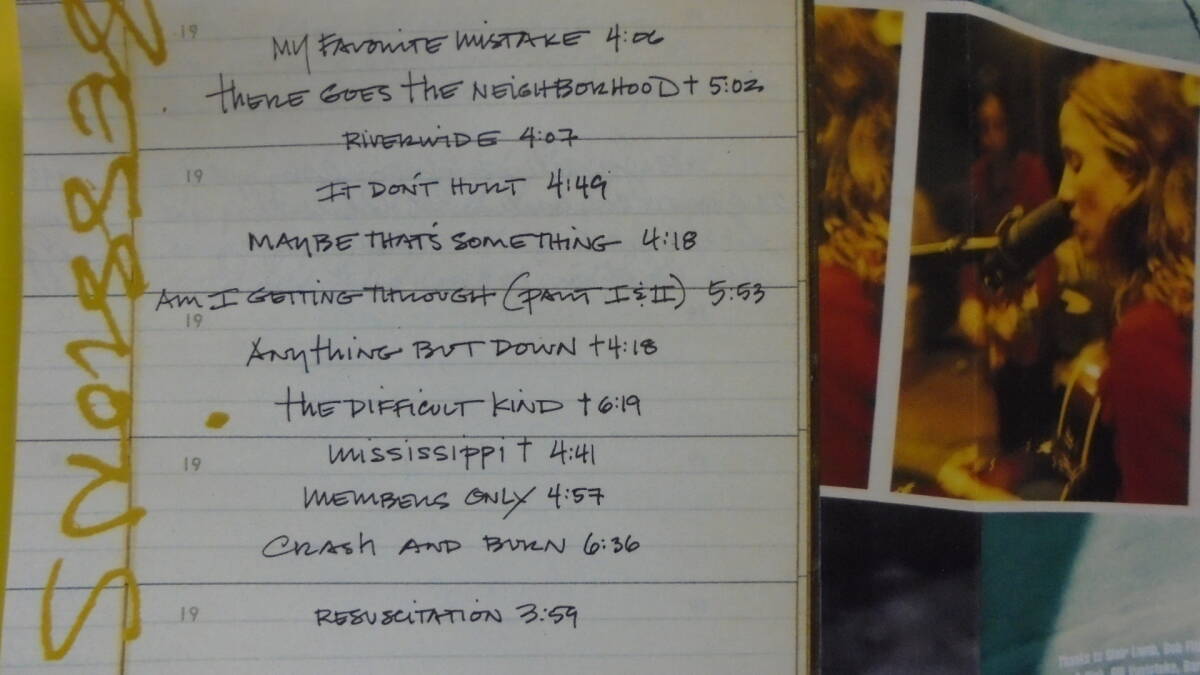 19
MY FAVORITE MISTAKE 4:06
THERE GOES THE NEIGHBORHOOD † 5:02
RIVERWIDE 4:07
19
IT DON'T HURT 4:49
MAYBE THAT'S SOMETHING 4:18
AM I GETTING THROUGH (PART I & II) 5:53
19
ANYTHING BUT DOWN † 4:18
THE DIFFICULT KIND † 6:19
MISSISSIPPI † 4:41
19
MEMBERS ONLY 4:57
CRASH AND BURN 6:36
19
RESUSCITATION 3:59
Thanks to